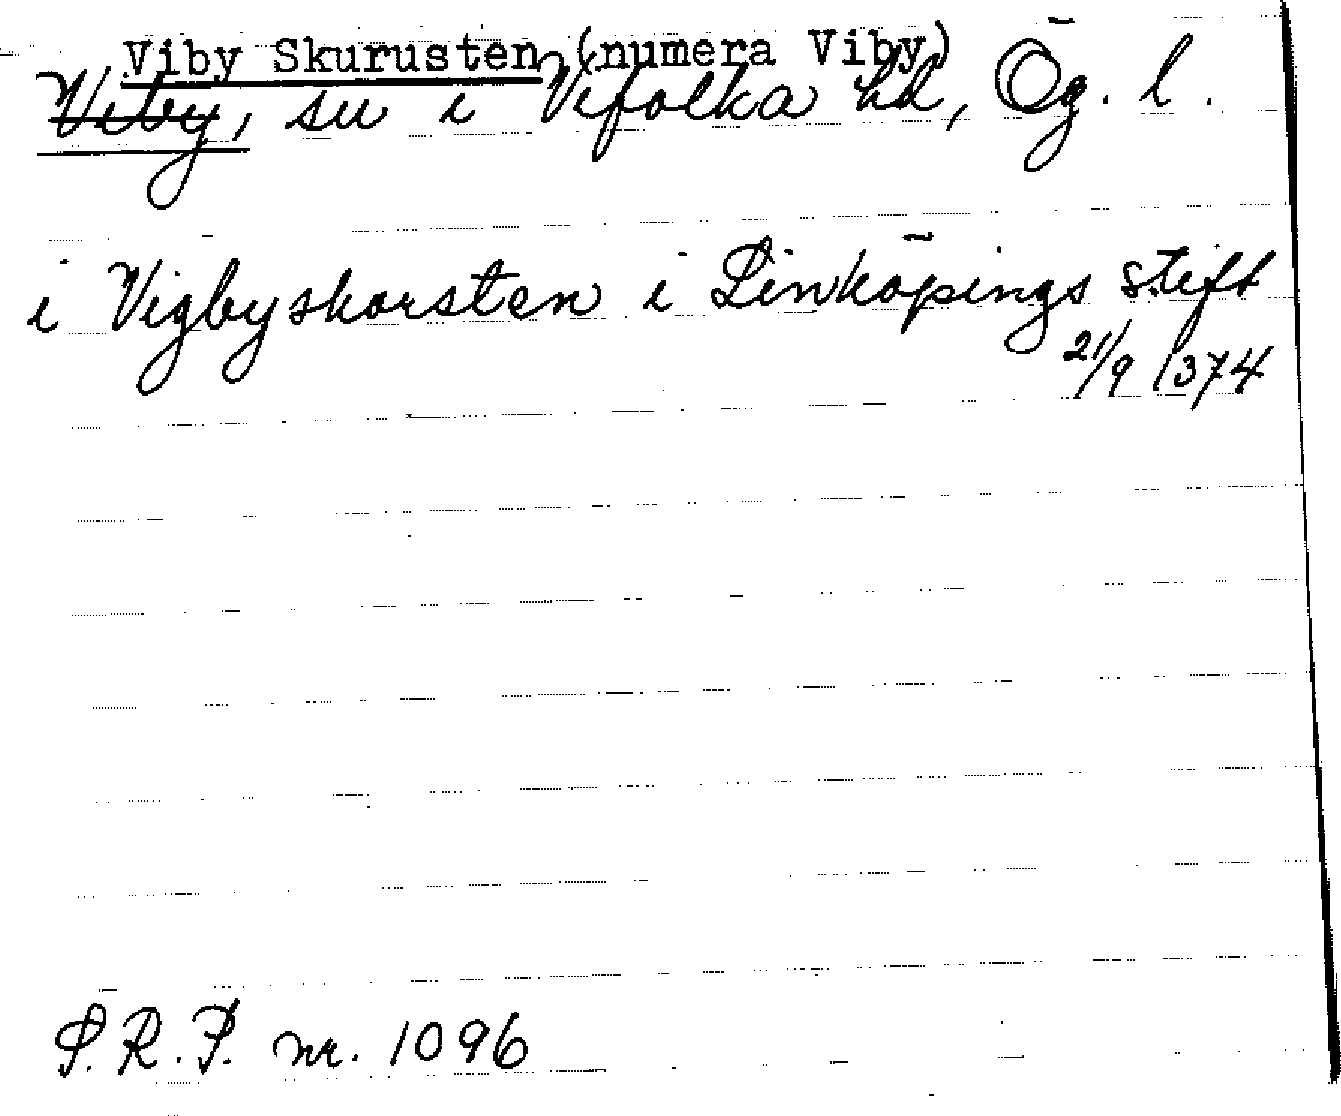 Viby Skurusten (numera Viby)
Viby, su i Vifolka hd, Ög. l.
i Vigbyskorsten i Linköpings stift
21/9 1374
S.R.P. nr. 1096